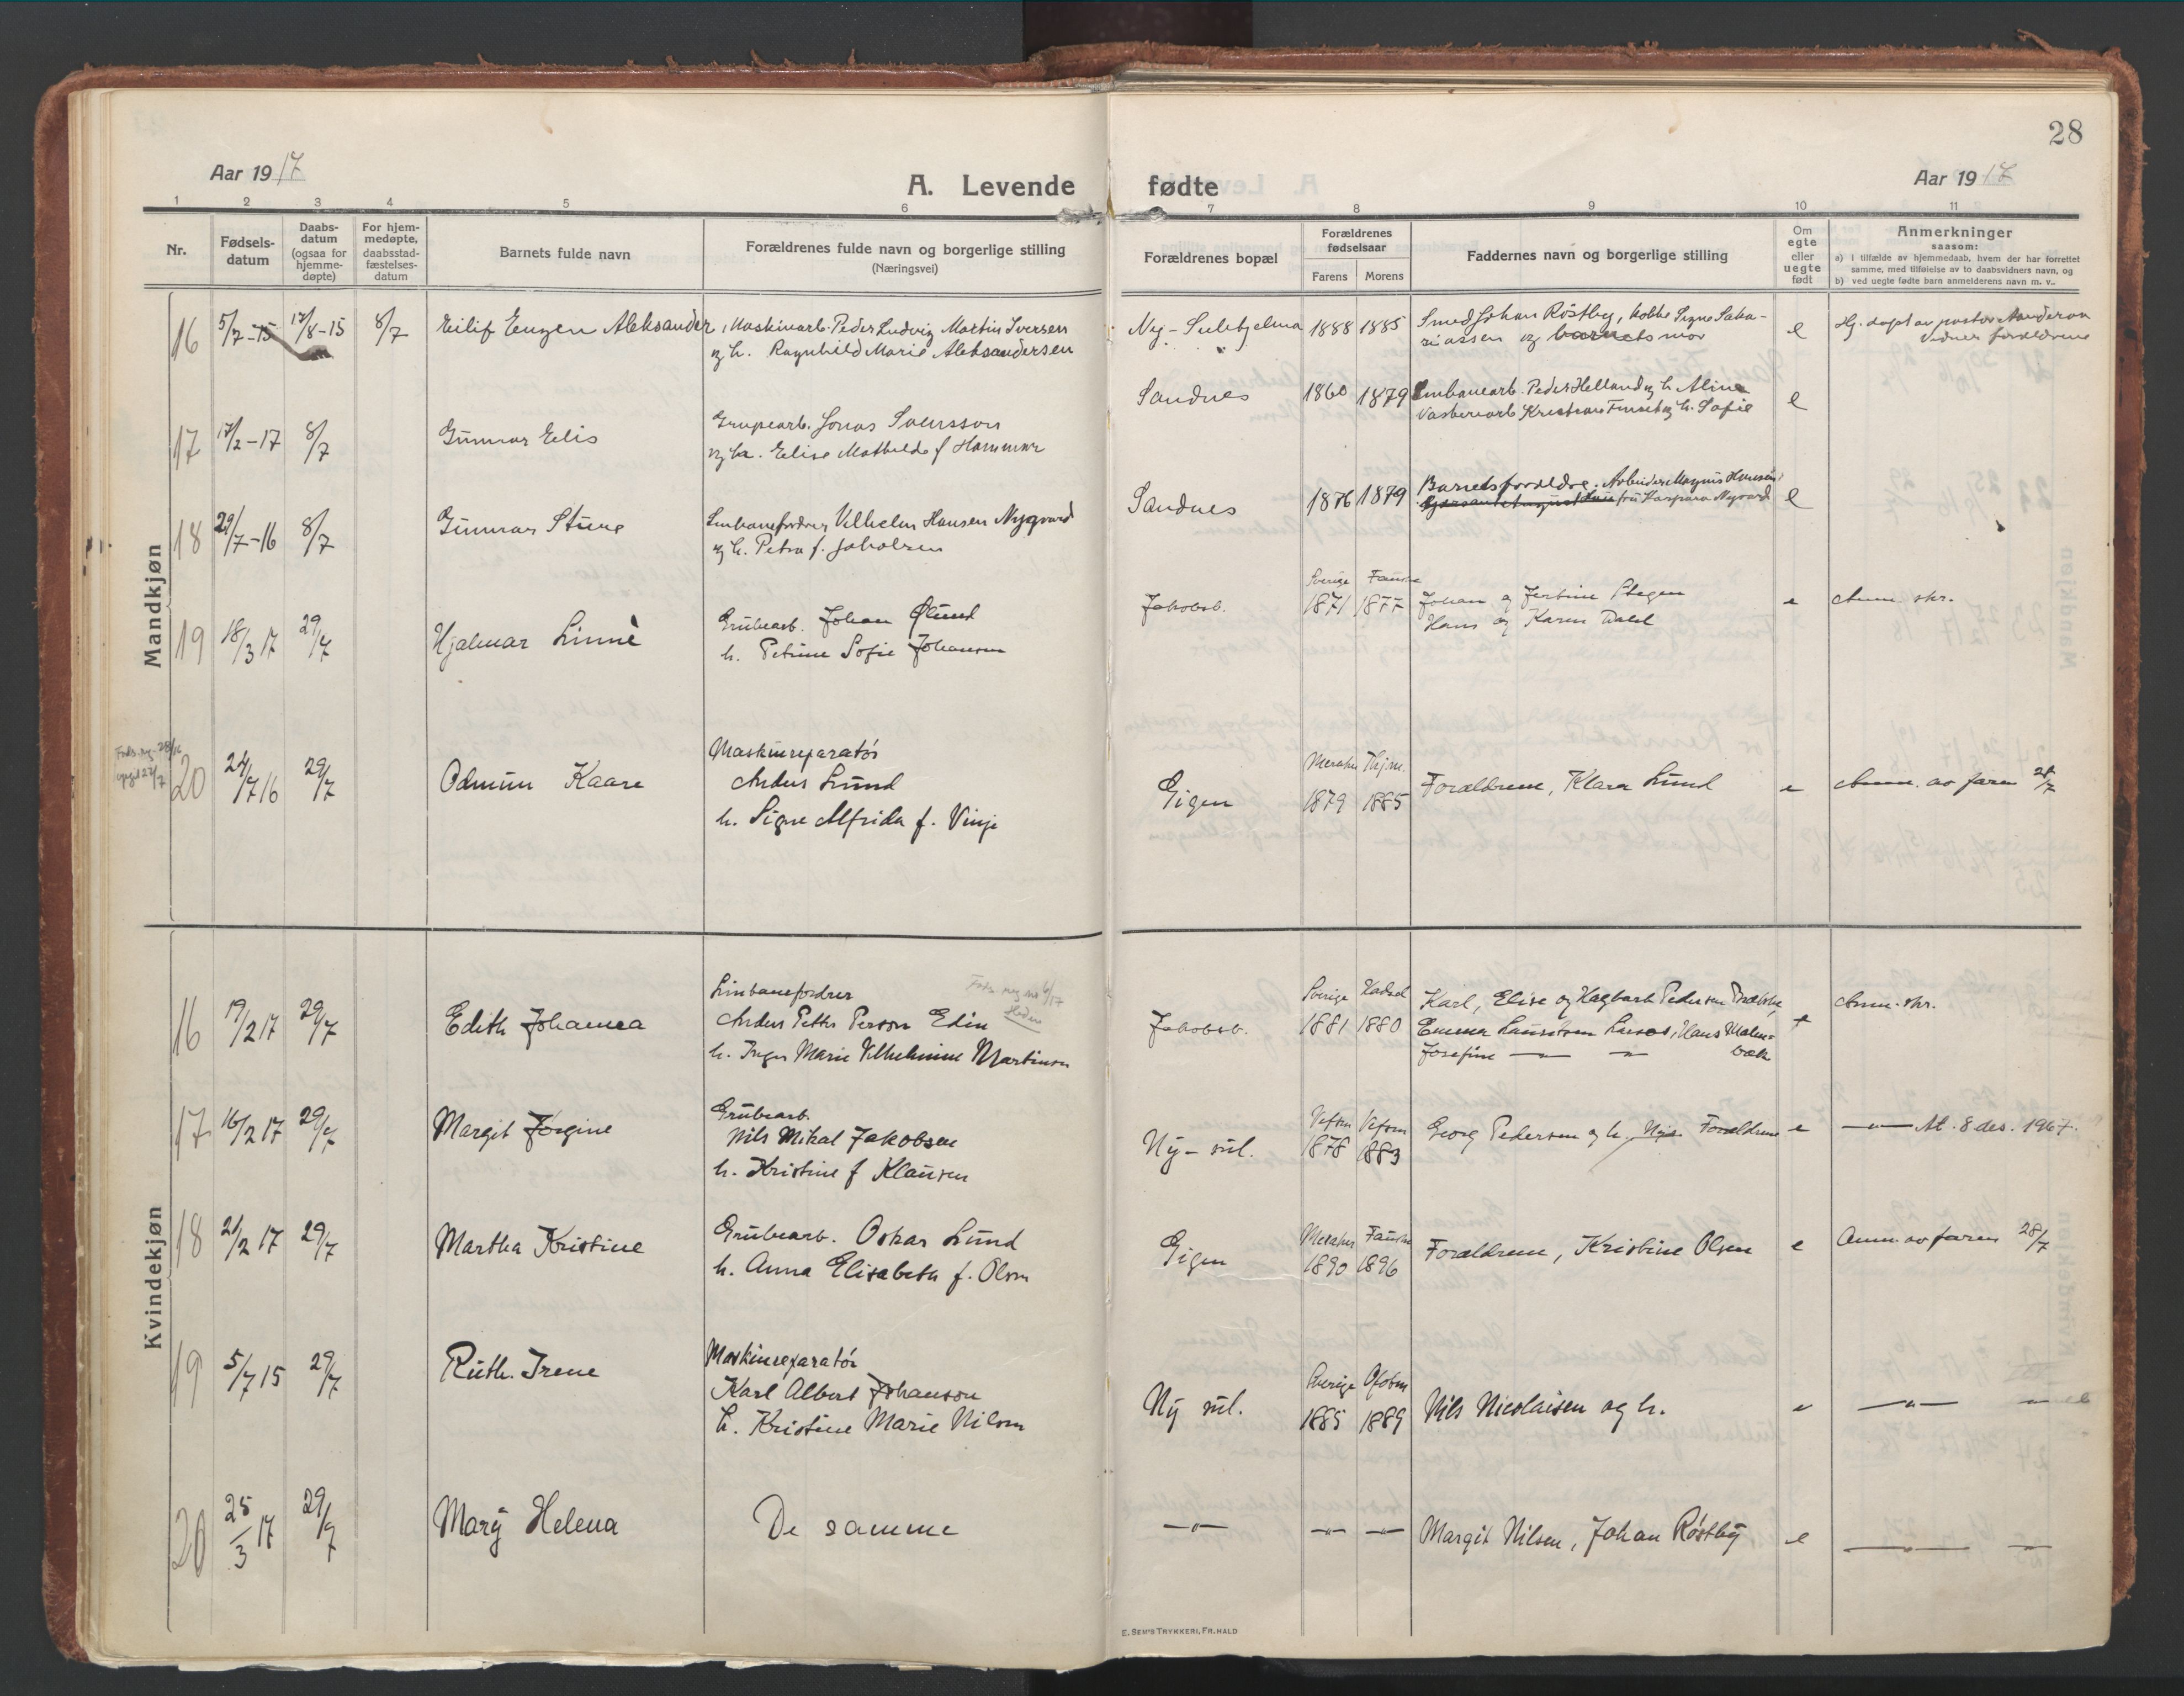 28
Aar 1917
A. Levende fødte
Aar 1917
1 2 3 4 5 6 7 8 9 10 11
Nr.
Fødsels-
datum
Daabs-
datum
(ogsaa for
hjemme-
døpte)
For hjem-
medøpte,
daabsstad-
fæstelses-
datum
Barnets fulde navn
Forældrenes fulde navn og borgerlige stilling
(Næringsvei)
Forældrenes bopæl
Forældrenes
fødselsaar
Farens Morens
Faddernes navn og borgerlige stilling
Om
egte
eller
uegte
født
Anmerkninger
saasom:
a) i tilfælde av hjemmedaab, hvem der har forrettet
samme, med tilføielse av to daabsvidners navn, og
b) ved uegte fødte barn anmelderens navn m. v..
Mandkjøn
16 5/7-15 12/8-15 8/7 Eilif Eugen Aleksander
Maskinarb. Peder Ludvig Martin Iversen
og h. Ragnhild Marie Aleksandersen
Ny-Sulitjelma 1888 1885
Smed Johan Röstby, Signe Saka-
riassen og barnets mor
e
Hj. døpt av pastor
Vidner forældrene
17 17/2-17 8/7 Gunnar Elis
Grupearb. Jonas Svensson
og h. Elise Mathilde f Hammar
Sandnes 1860 1879
Linbanearb. Peder Helland og h. Aline
Kristian Furset og h. Sofie
e
18 29/7-16 8/7 Gunnar Sture
Linbanefordrer Vilhelm Hansen Nygaard
og h. Petra f. Jakobsen
Sandnes 1876 1879
Barnets forældre. Arbeider Magnus Hansen
fru Kaspara Nygaard
e
19 18/3 17 29/7 Hjalmar Linnè
Grubearb. Johan Ølund
h. Petrine Sofie Johansen
Jakobsb.
Sverige Fauske
1871 1877
Johan og Jertine Stegen
Hans og Karen Dahl
e Anm. skr.
20 24/7 16 29/7 Odmun Kaare
Maskinreparatør
Anders Lund
h. Signe Alfrida f. Vinje
Gigen
Meraker
1879 1885
Forældrene, Klara Lund
e Anm. av faren 28/7
Kvindekjøn
16 19/2 17 29/7 Edith Johanna
Linbanefordrer
Anders Petter Person Edin
h. Inger Marie Vilhelmine Martinsen
Jakobsb.
Sverige Hadsel
1881 1880
Karl, Elise og Hagbart Pedersen
Emma Hans Malm-
Josefine — " — " bæk
Anm. skr.
17 16/2 17 29/7 Margit Jørgine
Grubearb.
Nils Mikal Jakobsen
h. Kristine f Klausen
Ny-sul.
Vefsn Vefsn
1878 1883
Georg Pedersen og h. Forældrene
e — " — At. 8 des. 1967.
18 21/2 17 29/7 Martha Kristine
Grubearb. Oskar Lund
h. Anna Elisabeth f. Olsen
Gigen
Meraker Fauske
1890 1896
Forældrene, Kristine Olsen
e Anm. av faren 28/7
19 5/7 15 29/7 Ruth Irene
Maskinreparatør
Karl Albert Johanson
h. Kristine Marie Nilsen
Ny sul.
Sverige Ofoten
1885 1889
Nils Nicolaisen og h.
e — " — "
20 25/3 17 29/7 Mary Helena
De samme
— " — — " — — " —
Margit Nilsen, Johan Røstby
e — " — —
E. SEM'S TRYKKERI, FR.HALD